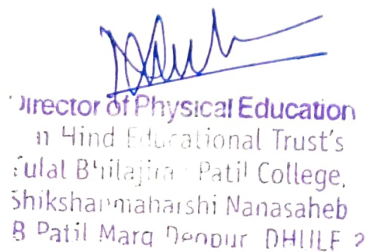 Director of Physical Education
Hind Educational Trust's
Patil College,
Shikshanmaharshi Nanasaheb
Patil Marg Deopur DHULE